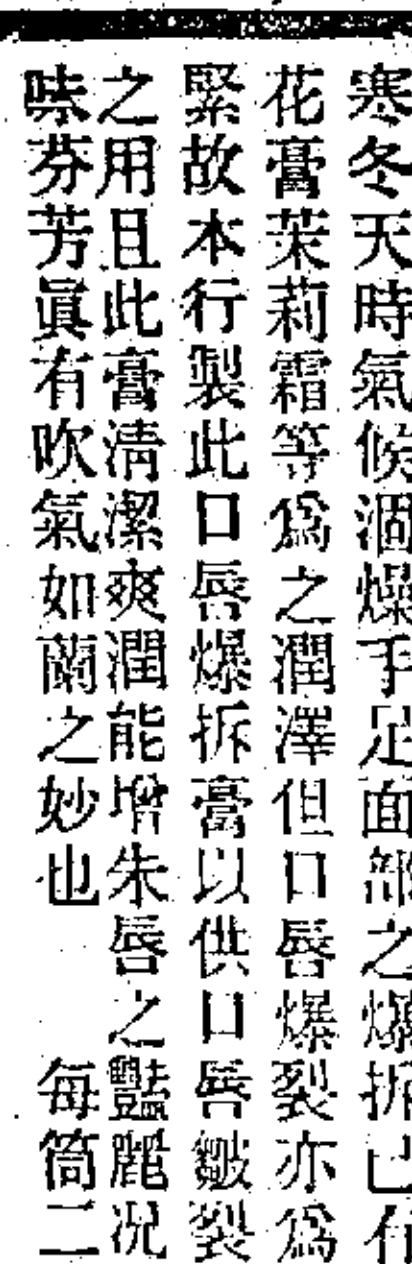 寒冬天時氣候涸燥手足面部之爆拆已有
花膏茉莉霜等爲之潤澤但口唇爆裂亦爲
緊故本行製此口唇爆拆膏以供口唇皺裂
之用且此膏清潔爽潤能增朱唇之豔麗况
味芬芳眞有吹氣如蘭之妙也 每筒二